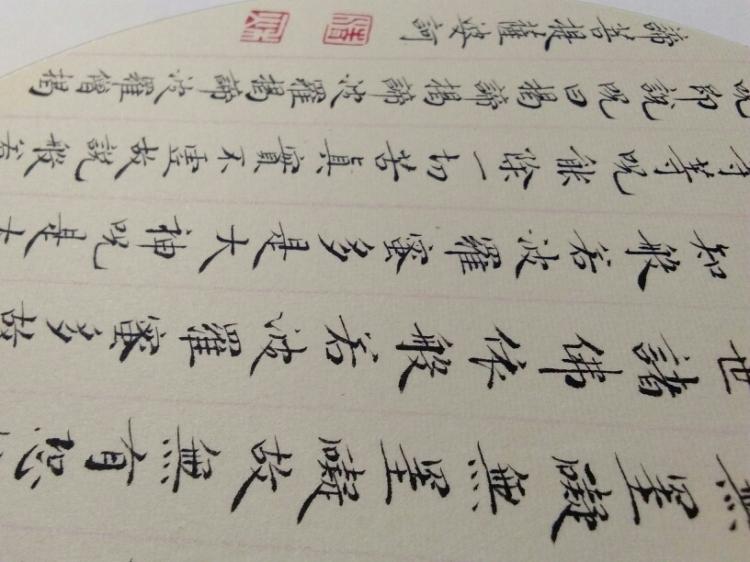 無罣礙無罣礙故無有恐
世諸佛依般若波羅蜜多故
知般若波羅蜜多是大神呪是大
等等呪能除一切苦真實不虛故說般若
呪即說呪曰揭諦揭諦波羅揭諦波羅僧揭
諦菩提薩婆訶